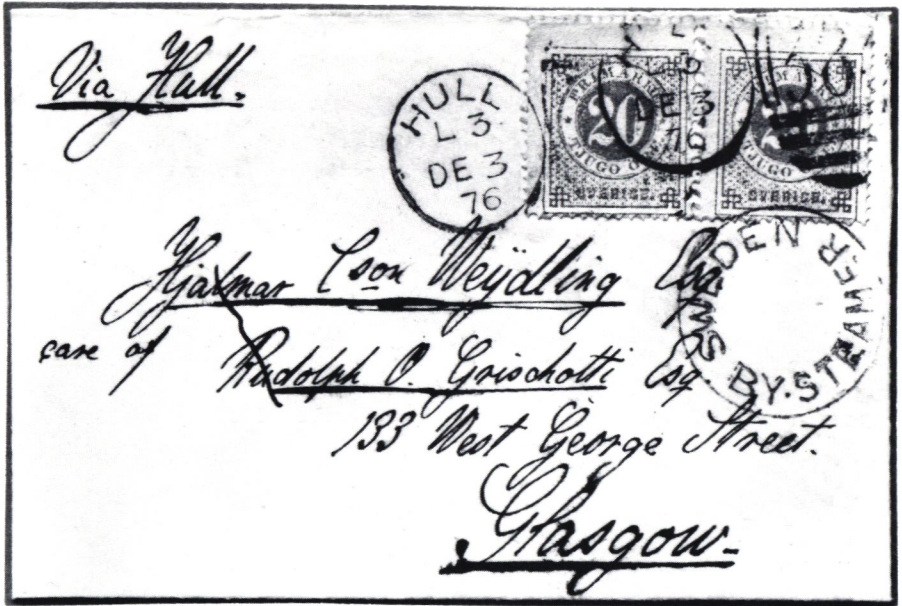 Via Hull.
HULL
L 3
DE 3
76
L 3
DE 3
7
20
TJUGO
SVERIGE.
TJUGO
SVERIGE.
SWEDEN
BY. STEAMER.
Hjalmar Cson Weijdling Esq.
care of
Rudolph O. Grischotti Esq
133 West George Street.
Glasgow.